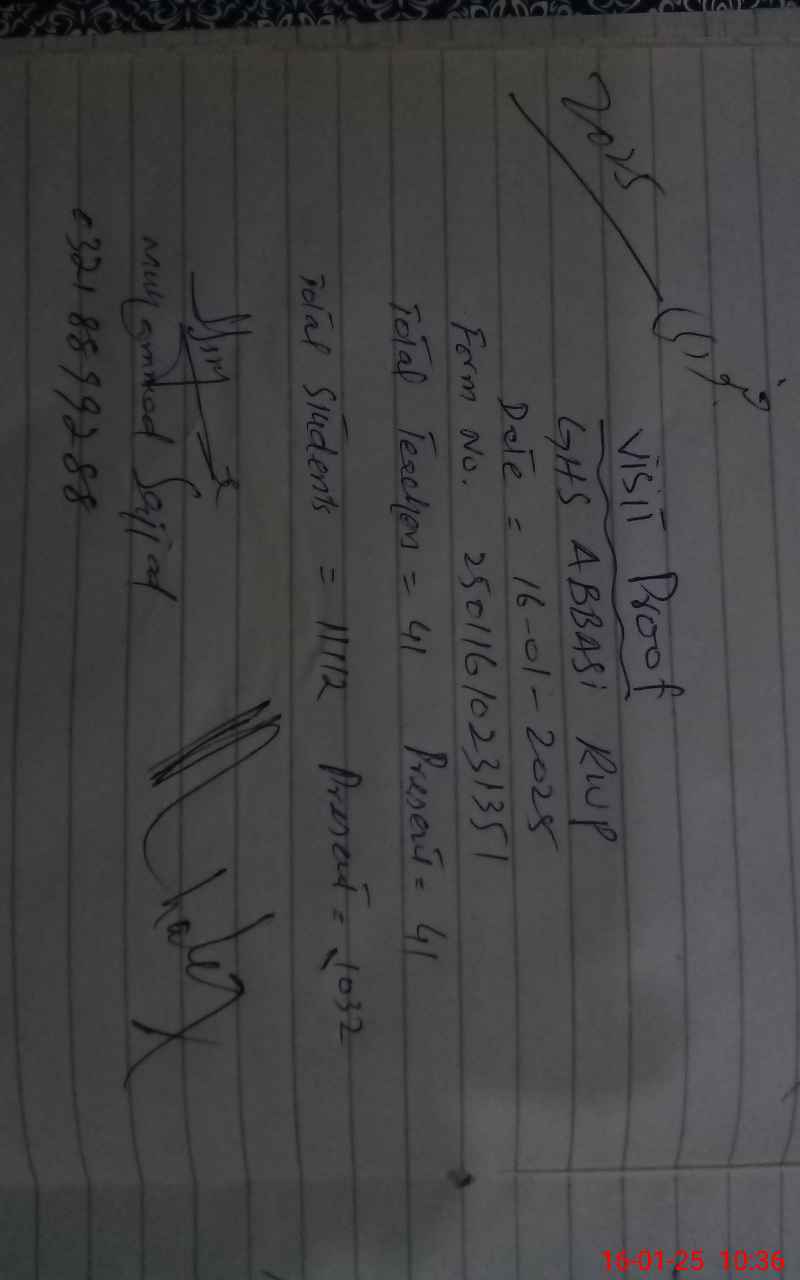 2025
Visit Proof
GHS ABBASI RWP
Date = 16-01-2025
Form No. 25011610231351
Total Teachers = 41 Present = 41
Total Students = 11112 Present = 1032
Muhammad Sajjad
16-01-25 10:36